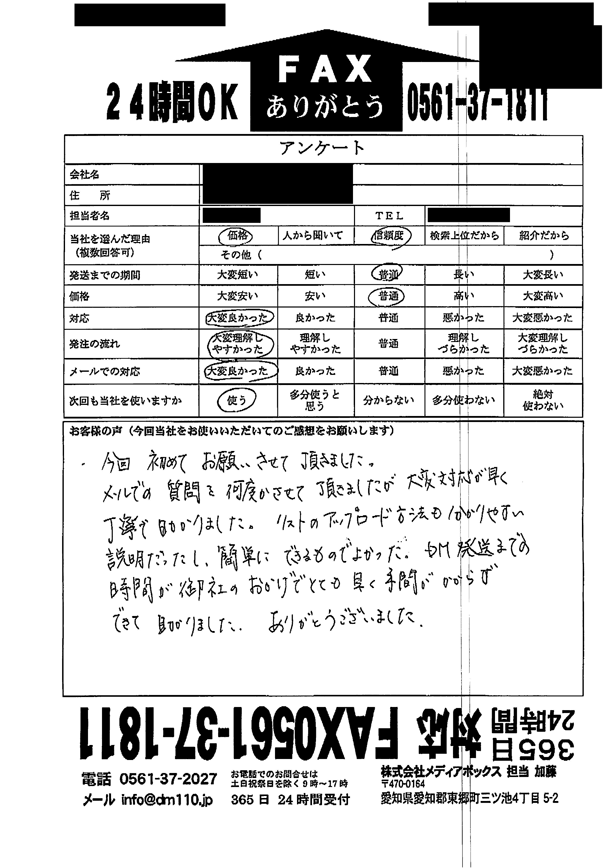 FAX
ありがとう
24時間OK
0561-37-1811
アンケート
会社名
住　所
担当者名 TEL
当社を選んだ理由（複数回答可） 価格 人から聞いて 信頼度 検索上位だから 紹介だから
その他（ ）
発送までの期間 大変短い 短い 普通 長い 大変長い
価格 大変安い 安い 普通 高い 大変高い
対応 大変良かった 良かった 普通 悪かった 大変悪かった
発注の流れ 大変理解しやすかった 理解しやすかった 普通 理解しづらかった 大変理解しづらかった
メールでの対応 大変良かった 良かった 普通 悪かった 大変悪かった
次回も当社を使いますか 使う 多分使うと思う 分からない 多分使わない 絶対使わない
お客様の声（今回当社をお使いいただいてのご感想をお願いします）
・今回 初めて お願いさせて 頂きました。
メールでの 質問を 何度かさせて 頂きましたが 大変対応が早く
丁寧で 助かりました。 リストのアップロード方法も分かりやすい
説明だったし、簡単に できるものでよかった。 DM発送までの
時間が 御社の おかげでとても 早く 手間が かからず
できて 助かりました。 ありがとうございました。
365日24時間対応 FAX0561-37-1811
電話 0561-37-2027
お電話でのお問合せは
土日祝祭日を除く9時～17時
株式会社メディアボックス 担当 加藤
〒470-0164
メール info@dm110.jp
365日 24時間受付
愛知県愛知郡東郷町三ツ池4丁目5-2